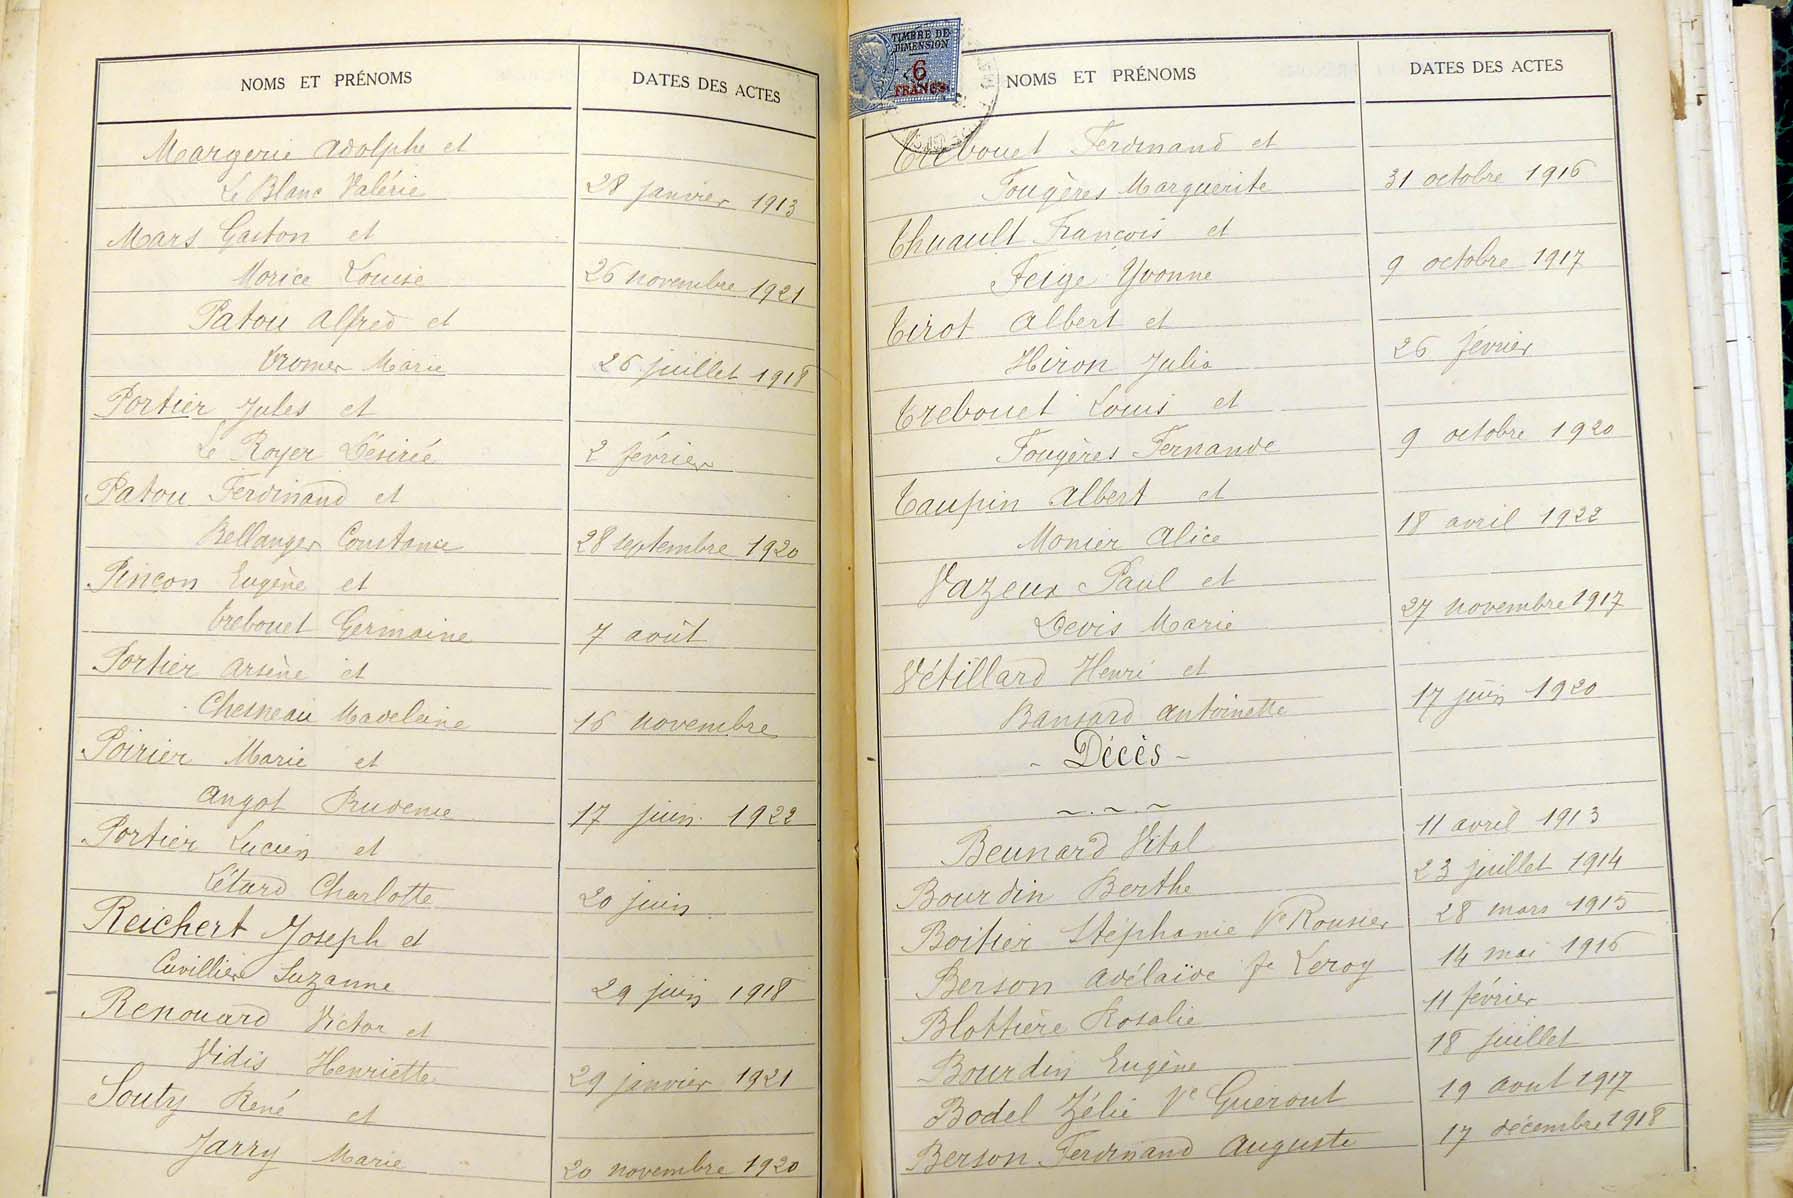 NOMS ET PRÉNOMS DATES DES ACTES
Margerie Adolphe et
Le Blanc Valérie 28 janvier 1913
Mars Gaston et
Morice Louise 26 novembre 1921
Patou Alfred et
Cromer Marie 26 juillet 1918
Portier Jules et
Le Royer Désirée 2 février
Patou Ferdinand et
Bellanger Constance 28 septembre 1920
Pinçon Eugène et
Trebouet Germaine 7 août
Portier Arsène et
Chesneau Madeleine 16 novembre
Poirier Marie et
Angot Prudence 17 juin 1922
Portier Lucien et
Létard Charlotte 20 juin
Reichert Joseph et
Cuvillier Suzanne 29 juin 1918
Renouard Victor et
Vidis Henriette 29 janvier 1921
Souty René et
Jarry Marie 20 novembre 1920
TIMBRE DE
DIMENSION
6
FRANCS
NOMS ET PRÉNOMS DATES DES ACTES
Trebouet Ferdinand et
Fougères Marguerite 31 octobre 1916
Thuault François et
Feige Yvonne 9 octobre 1917
Tirot Albert et
Hiron Julia 26 février
Trebouet Louis et
Fougères Fernande 9 octobre 1920
Taupin Albert et
Monier Alice 18 avril 1922
Vazeux Paul et
Devis Marie 27 novembre 1917
Vétillard Henri et
Bansard Antoinette 17 juin 1920
- Décès -
Beunard Vital 11 avril 1913
Bourdin Berthe 23 juillet 1914
Boitier Stéphanie Ve Rousier 28 mars 1915
Berson Adélaïde fe Leroy 14 mai 1916
Blottière Rosalie 11 février
Bourdin Eugène 18 juillet
Bodel Zélie Ve Guérout 19 aout 1917
Berson Ferdinand Auguste 17 décembre 1918